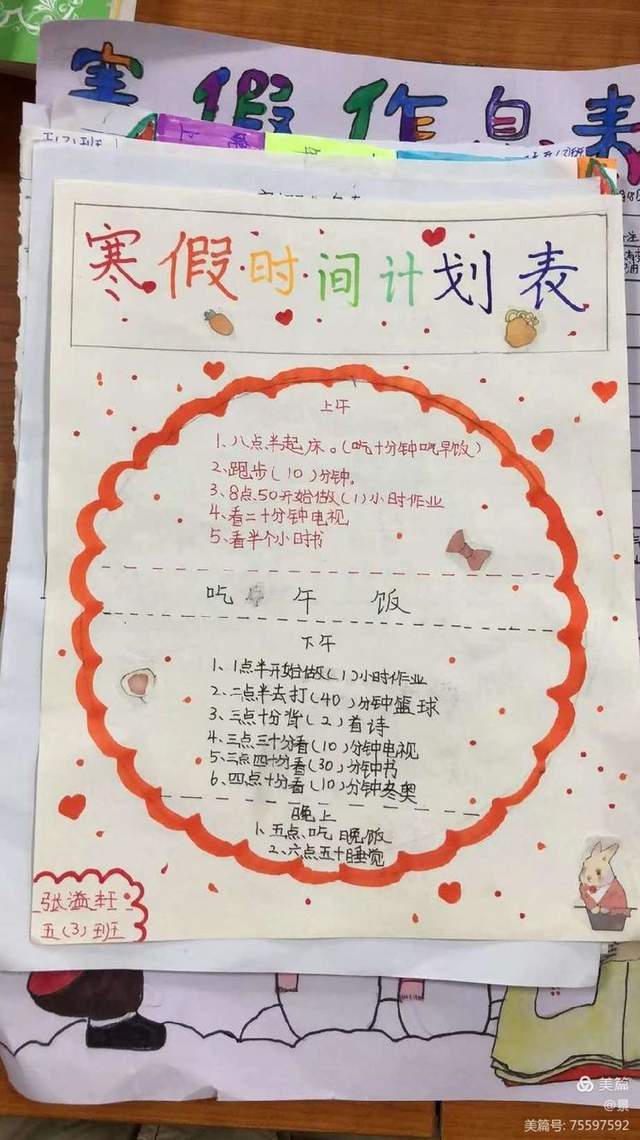 寒假作息表
五(2)班
寒假时间计划表
上午
1、八点半起床。(吃十分钟吃早饭)
2、跑步(10)分钟。
3、8点50开始做(1)小时作业
4、看二十分钟电视
5、看半个小时书
吃午饭
下午
1、1点半开始做(1)小时作业
2、二点半去打(40)分钟篮球
3、三点十分背(2)首诗
4、三点三十分看(10)分钟电视
5、三点四十分看(30)分钟书
6、四点十分看(10)分钟冬奥
晚上
1、五点、吃晚饭
2、六点五十睡觉
张溢
五(3)班
美篇
@景
美篇号: 75597592